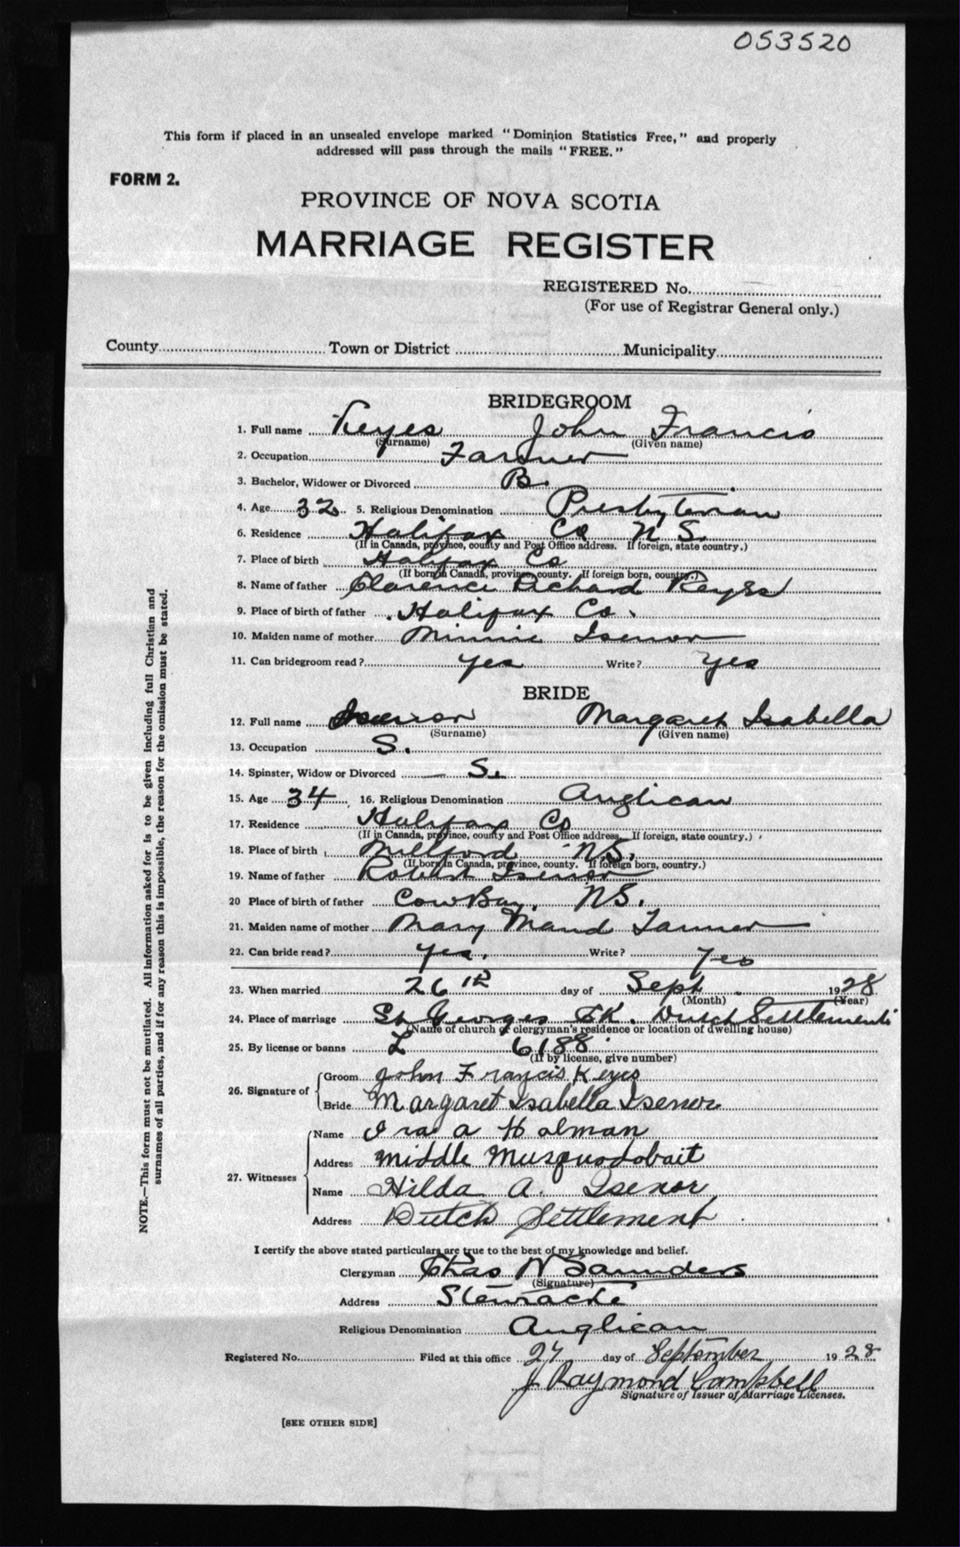 053520
This form if placed in an unsealed envelope marked "Dominion Statistics Free," and properly
addressed will pass through the mails "FREE."
FORM 2.
PROVINCE OF NOVA SCOTIA
MARRIAGE REGISTER
REGISTERED No.
(For use of Registrar General only.)
County Town or District Municipality
BRIDEGROOM
1. Full name Keyes John Francis
(Surname) (Given name)
2. Occupation Farmer
3. Bachelor, Widower or Divorced B.
4. Age 32 5. Religious Denomination Presbyterian
6. Residence Halifax Co N.S.
(If in Canada, province, county and Post Office address. If foreign, state country.)
7. Place of birth Halifax Co
(If born in Canada, province, county. If foreign born, country.)
8. Name of father Clarence Richard Keyes
9. Place of birth of father Halifax Co.
10. Maiden name of mother Minnie Isenor
11. Can bridegroom read? yes Write? yes
BRIDE
12. Full name Isenor Margaret Isabella
(Surname) (Given name)
13. Occupation S.
14. Spinster, Widow or Divorced S.
15. Age 34 16. Religious Denomination Anglican
17. Residence Halifax Co
(If in Canada, province, county and Post Office address. If foreign, state country.)
18. Place of birth Millford N.S.
(If born in Canada, province, county. If foreign born, country.)
19. Name of father Robert Isenor
20 Place of birth of father Cow Bay, N.S.
21. Maiden name of mother Mary Maud Tanner
22. Can bride read? Yes. Write? Yes
23. When married 26th day of Sept 1928
(Month) (Year)
24. Place of marriage St Georges Ch. Dutch Settlement
(Name of church of clergyman's residence or location of dwelling house)
25. By license or banns L 6188
(If by license, give number)
26. Signature of Groom John Francis Keyes
Bride Margaret Isabella Isenor
27. Witnesses Name Ira A Holman
Address Middle Musquodobait
Name Hilda A. Isenor
Address Dutch Settlement
I certify the above stated particulars are true to the best of my knowledge and belief.
Clergyman Chas N Saunders
(Signature)
Address Stewiacke
Religious Denomination Anglican
Registered No. Filed at this office 27 day of September 1928
J Raymond Campbell
Signature of Issuer of Marriage Licenses.
[SEE OTHER SIDE]
NOTE.—This form must not be mutilated. All information asked for is to be given including full Christian and
surnames of all parties, and if for any reason this is impossible, the reason for the omission must be stated.